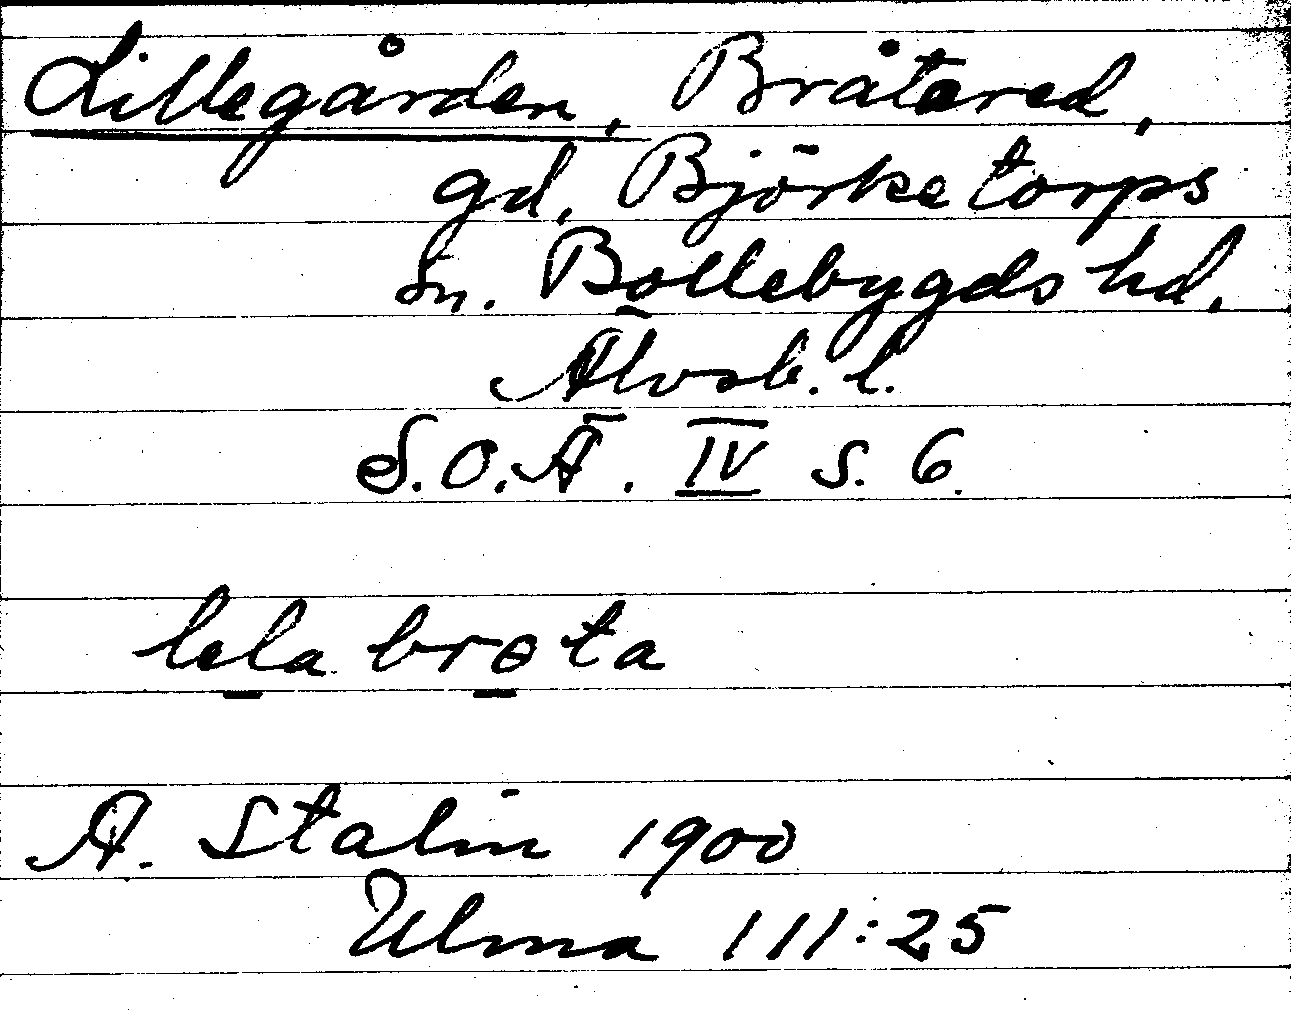 Lillegården, Bråtered,
gd, Björketorps
sn. Bollebygds hd.
Älvsb. l.
S.O.Ä. IV s. 6.
lela brɵta
A. Stalin 1900
Ulma 111:25